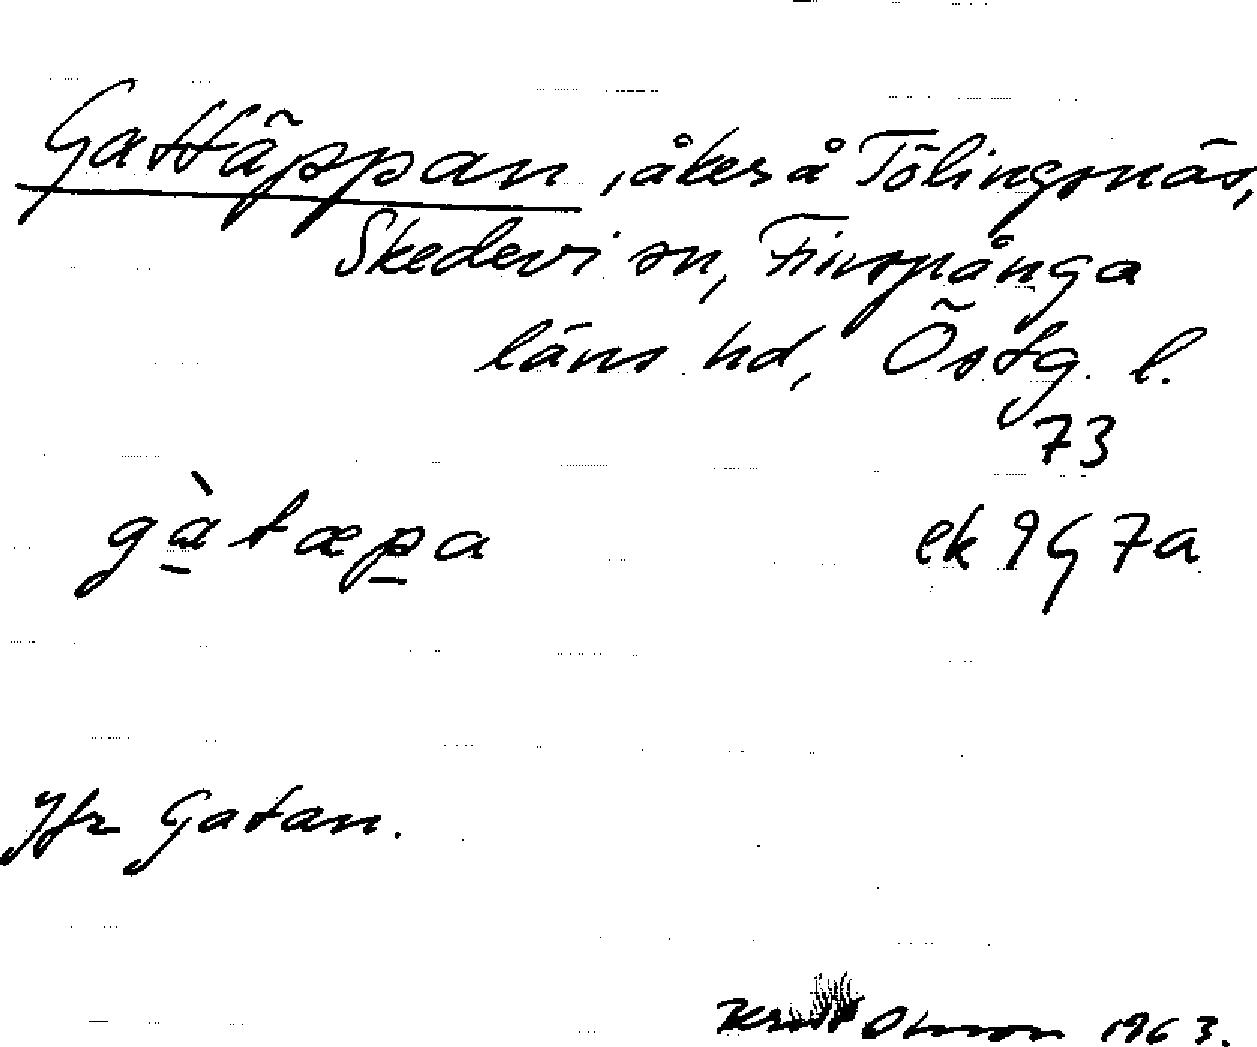 Gattäppan, åker å Tölingsnäs,
Skedevi sn, Finspånga
läns hd, Östg. l.
73
gàtæpa ek 9G7a
Jfr Gatan.
1963.